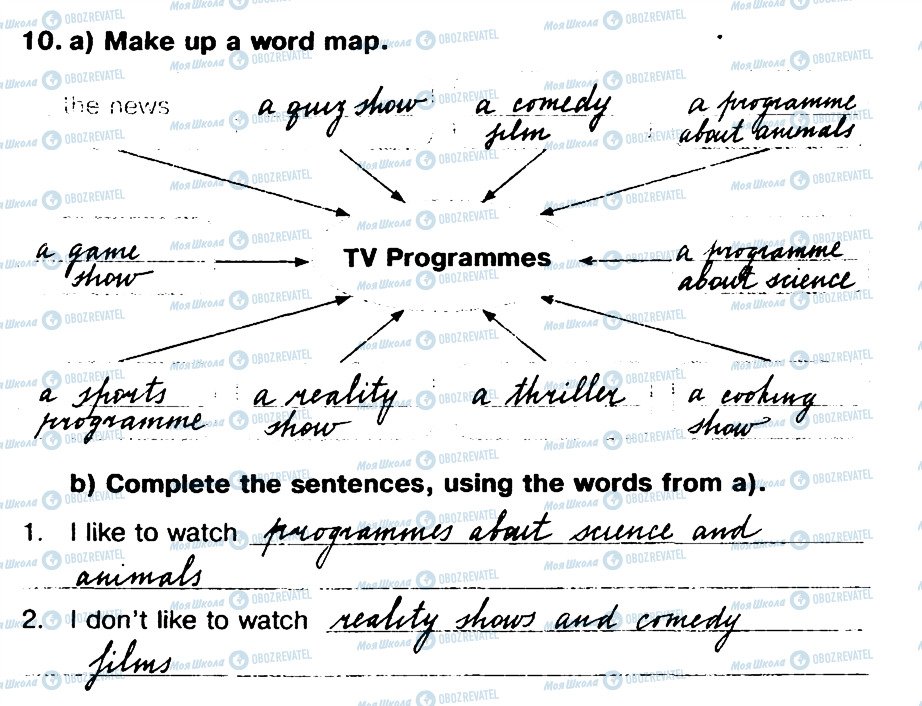 10. a) Make up a word map.
the news
a quiz show
a comedy
film
a programme
about animals
a game
show
TV Programmes
a programme
about science
a sports
programme
a reality
show
a thriller
a cooking
show
b) Complete the sentences, using the words from a).
1. I like to watch programmes about science and
animals
2. I don't like to watch reality shows and comedy
films
Моя Школа OBOZREVATEL